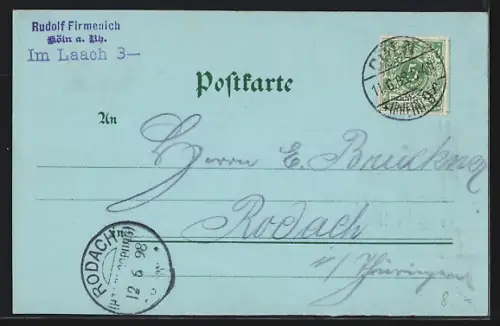 Rudolf Firmenich
Köln a. Rh.
Im Laach 3—
Postkarte
An
Herrn E. Brückner
Rodach
in
i/Thüringen
RODACH
12 6 98
5
8